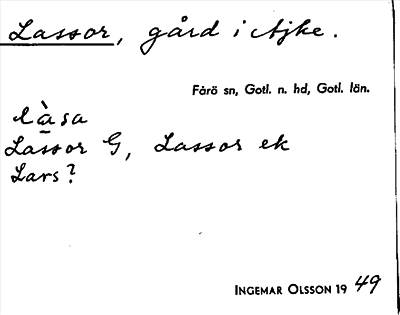 Lassor, gård i Ajke.
Fårö sn, Gotl. n. hd, Gotl. län.
làsa
Lassor G, Lassor ek
Lars?
INGEMAR OLSSON 1949